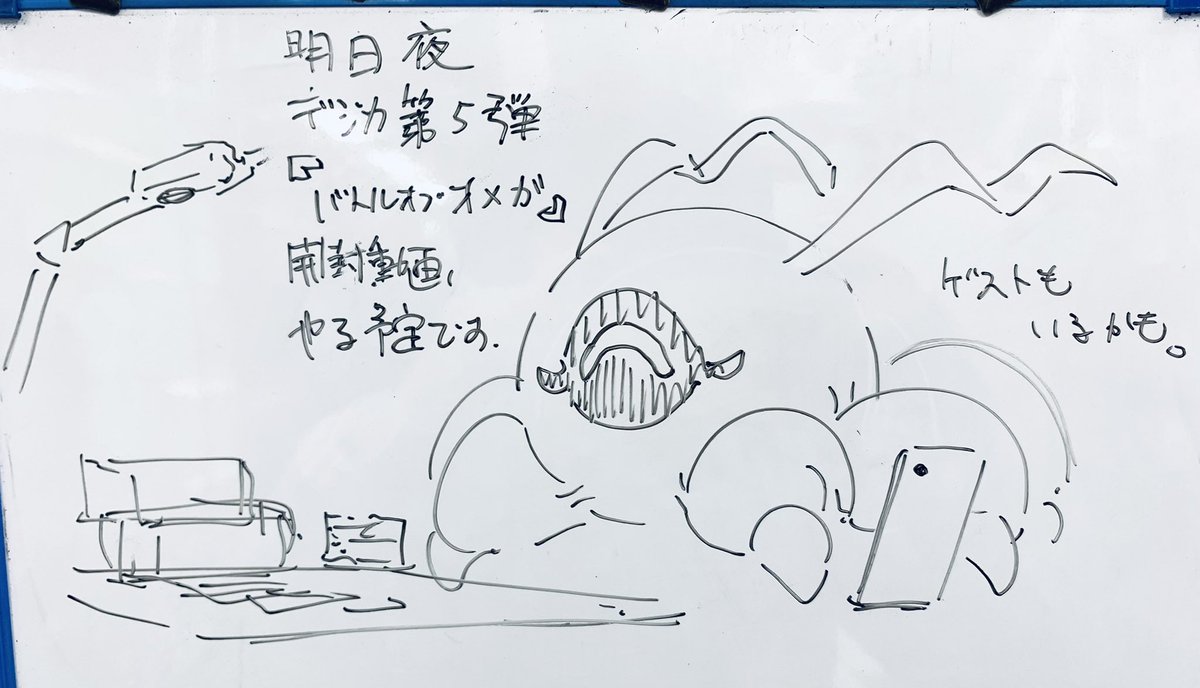 明日夜
デジカ第5弾
『バトルオブオメガ』
開封動画、
やる予定です.
ゲストも
いるかも。